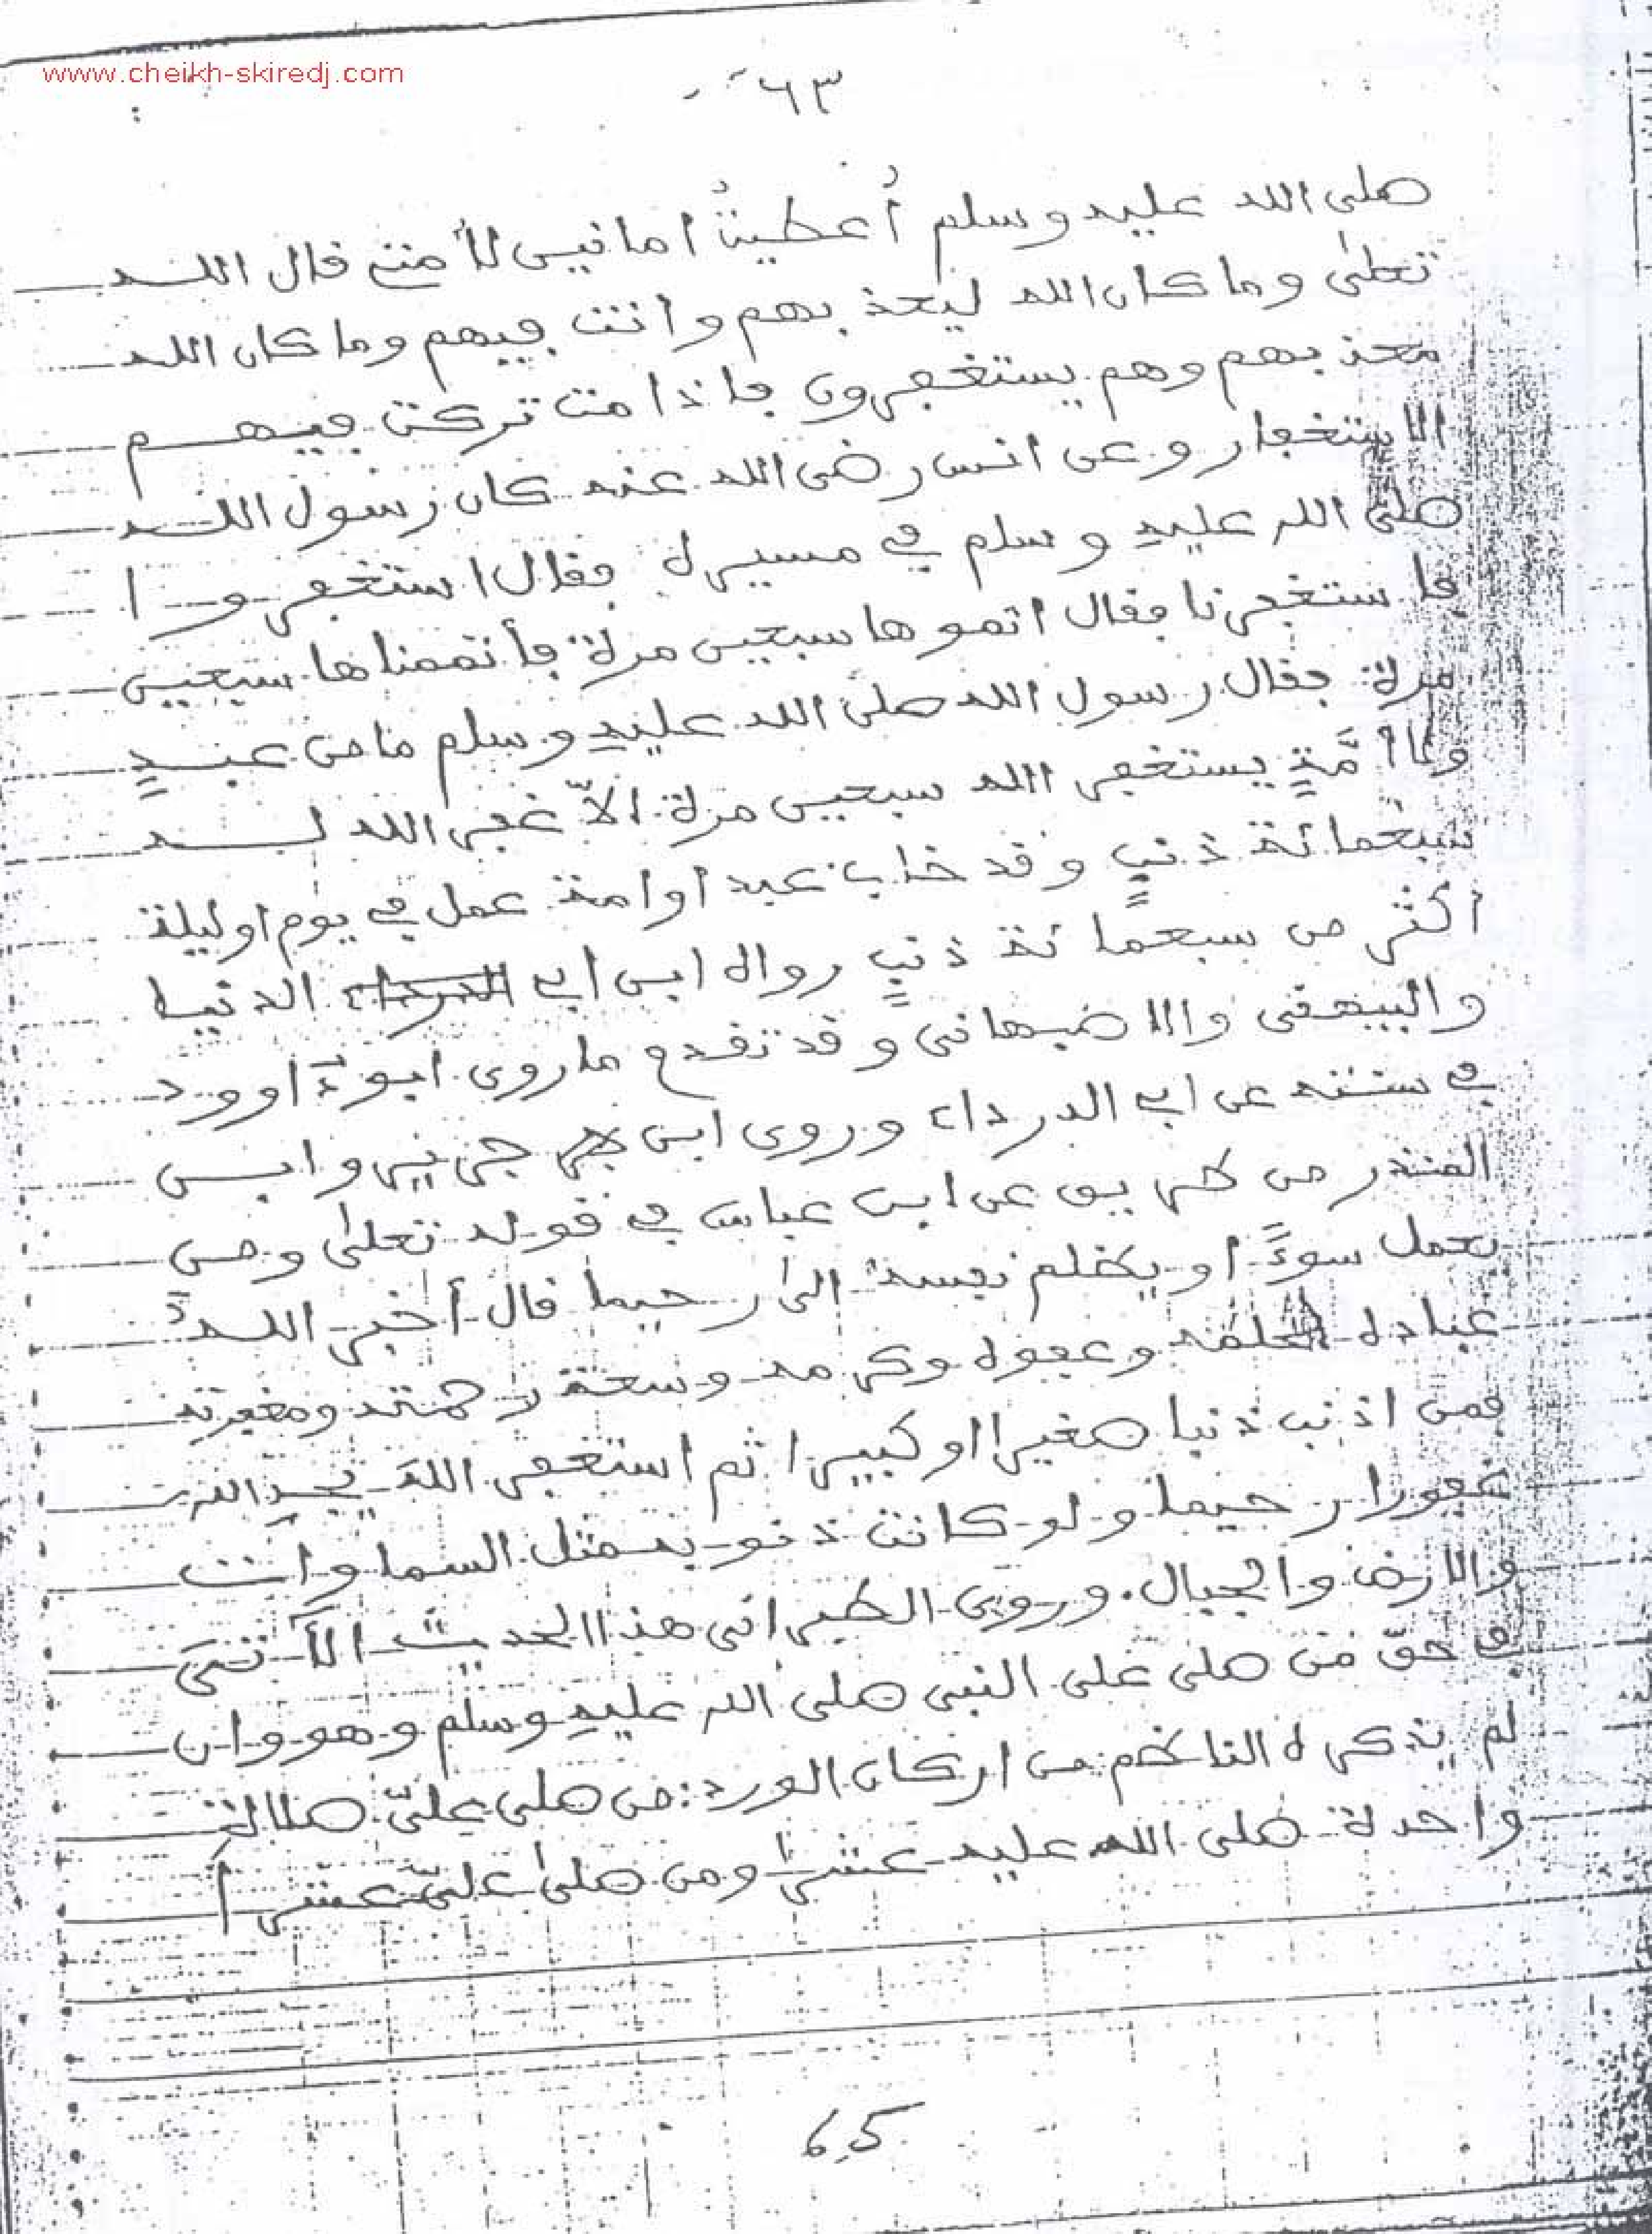 www.cheikh-skiredj.com
٦٣
صلى الله عليه وسلم أُعطيتُ امانين لأمتي قال الله
تعلىٰ وما كان الله ليعذبهم وانت فيهم وما كان الله
معذبهم وهم يستغفرون فاذا مت تركت فيهم
الاستغفار وعن انس رضى الله عنه كان رسول الله
صلى الله عليهِ وسلم في مسيره فقال استغفروا
فاستغفرنا فقال اتموها سبعين مرة فأتممناها سبعين
مرة فقال رسول الله صلى الله عليهِ وسلم ما من عبدٍ
ولا أمَّةٍ يستغفر الله سبعين مرة الاّ غفر الله لـه
سبعمائة ذنبٍ وقد خاب عبد او امة عمل في يوم او ليلة
أكثر من سبعمائة ذنبٍ رواه ابن ابي الدرداء الدنيا
والبيهقى والاصبهانى وقد تقدم ما روى ابو داوود
في سننه عن ابي الدرداء وروى ابن جرير وابن
المنذر من طريق عن ابن عباس في قوله تعلىٰ ومن
يعمل سوءًا او يظلم نفسه الى رحيما قال أخبر اللهُ
عباده بحلمه وعفوه وكرمه وسعة رحمته ومغفرته
فمن اذنب ذنبا صغيرا او كبيرا ثم استغفر اللهَ يجدِ الله
غفورا رحيما ولو كانت ذنوبه مثل السماوات
والارض والجبال. وروى الطبرانى هذا الحديث الأتي
في حقّ من صلى على النبى صلى الله عليهِ وسلم وهو وان
لم يذكره الناظم من اركان الورد: من صلى عليّ صلاة
واحدة صلى الله عليه عشرا ومن صلىٰ عليّ عشرا
65